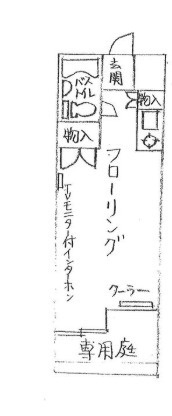 玄関
バス
トイレ
物入
物入
フローリング
TVモニター付インターホン
クーラー
専用庭